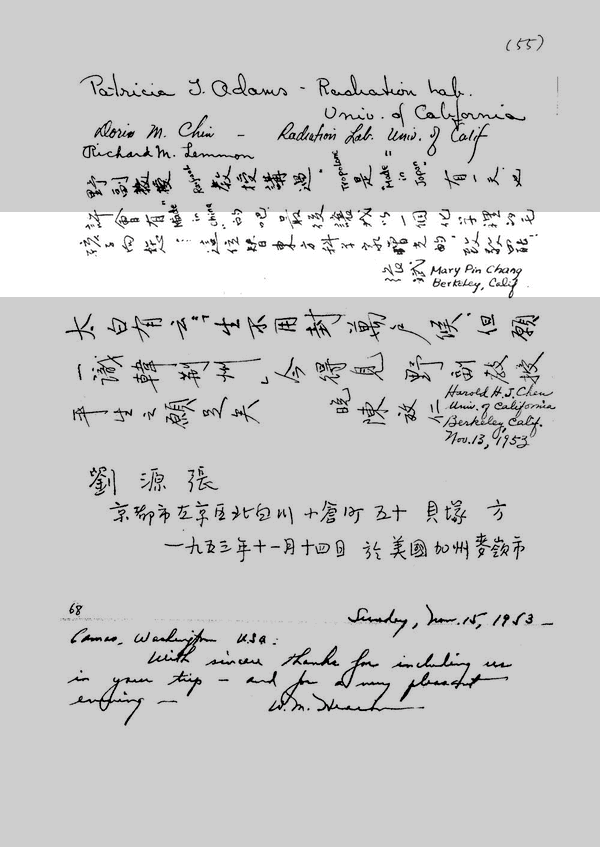 (55)
Patricia J. Adams - Radiation Lab.
Univ. of California
Doris M. Chin - Radiation Lab. Univ. of Calif
Richard M. Lemmon
野副教授 "Reject" 教授講過 "Tropolone" 是 "Made in Japan" 有一天也
許會有 "Made in China" 的吧 最後讓我以一個化學裡的毛
孩子向您
這位替東方科學家
Mary Pin Chang
Berkeley, Calif
太白有云"生不用封萬户侯, 但願
一識韓荆州" 今得見 野副教授
平生之願足矣 晚 陳放仁
Harold H. J. Chen
Univ. of California
Berkeley, Calif.
Nov. 13, 1953
劉源張
京都市左京区北白川小倉町五十 貝塚 方
一九五三年十一月十四日 於美國加州麥嶺市
68
Sunday, Nov. 15, 1953 -
Camas, Washington U.S.A.
With sincere thanks for including us
in your trip - and for a very pleasant
evening - W. M. Hearon